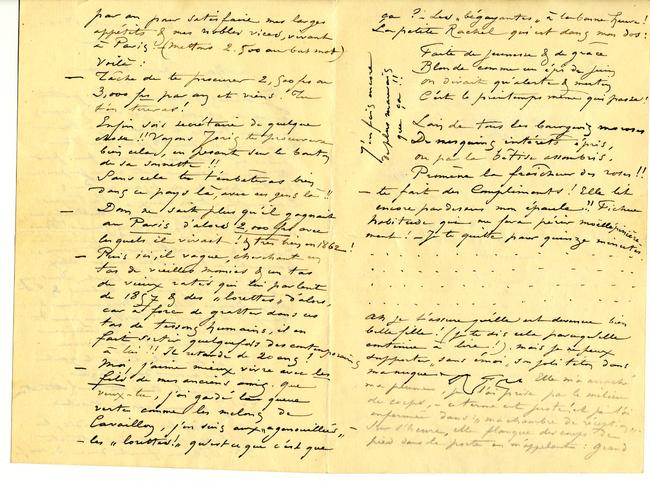 par an pour satisfaire mes larges
appétits & mes nobles vices, vivant
à Paris! (mettons 2.500 au bas mot)
Voilà :
— Tâche de te procurer 2,500 frs ou
3,000 frs par an et viens! Tu
t'en tireras!
Enfin sois secrétaire de quelque
chose!! Voyons Joris te procurera
bien cela, en pesant sur le bouton
de sa sonnette!!
Sans cela tu t'embêteras bien
dans ce pays là, avec ces gens là!!
— Dom, ne sait plus qu'il gagnait
au Paris d'alors 2,000 frs avec
lesquels il vivait! & très bien en 1862!
— Puis ici, il vague, cherchant un
tas de vieilles momies & un tas
de vieux ratés qui lui parlent
de 1857 & des „lorettes" d'alors,
car à force de gratter dans ces
tas de tessons humains, il en
fait sortir quelquefois des contemporains
à lui!! Il retarde de 20 ans!
— Moi, j'aime mieux vivre avec les
fils de mes anciens amis. que
veux-tu, j'ai gardé la queue
verte comme les melons de
Cavaillon, j'en suis aux „agenouillées"
— les „lorettes!" qu'est ce que c'est que
ça?: Les „bégayantes" à la bonne heure!
La petite Rachel qui est dans mon dos:
Faite de jeunesse & de grace
Blonde comme un épi de juin
on dirait qu'alerte & mutin
C'est le printemps même qui passe!
J'en fais encore
de plus mauvais
que ça!!
Loin de tous les bourgeois moroses
De mesquins intérêts épris,
ou par la bêtise assombris.
Promène la fraîcheur des roses!!
— te fait des Compliments! Elle lit
encore par dessus mon épaule!! Fichue
habitude que me fera périr
ment! — Je te quitte pour quinze minutes
Ah je t'assure qu'elle est devenue bien
belle fille! (je te dis cela parce qu'elle
continue à lire!) mais je ne peux
supporter „sans émoi", son joli téton dans
ma nuque Elle m'a arraché
ma plume, je l'ai prise par le milieu
de corps, & je l'ai
enfermée dans „ma chambre de réception"
— Sur l'heure, elle flanque des coups de
pied dans la porte en m'appelant: Grand